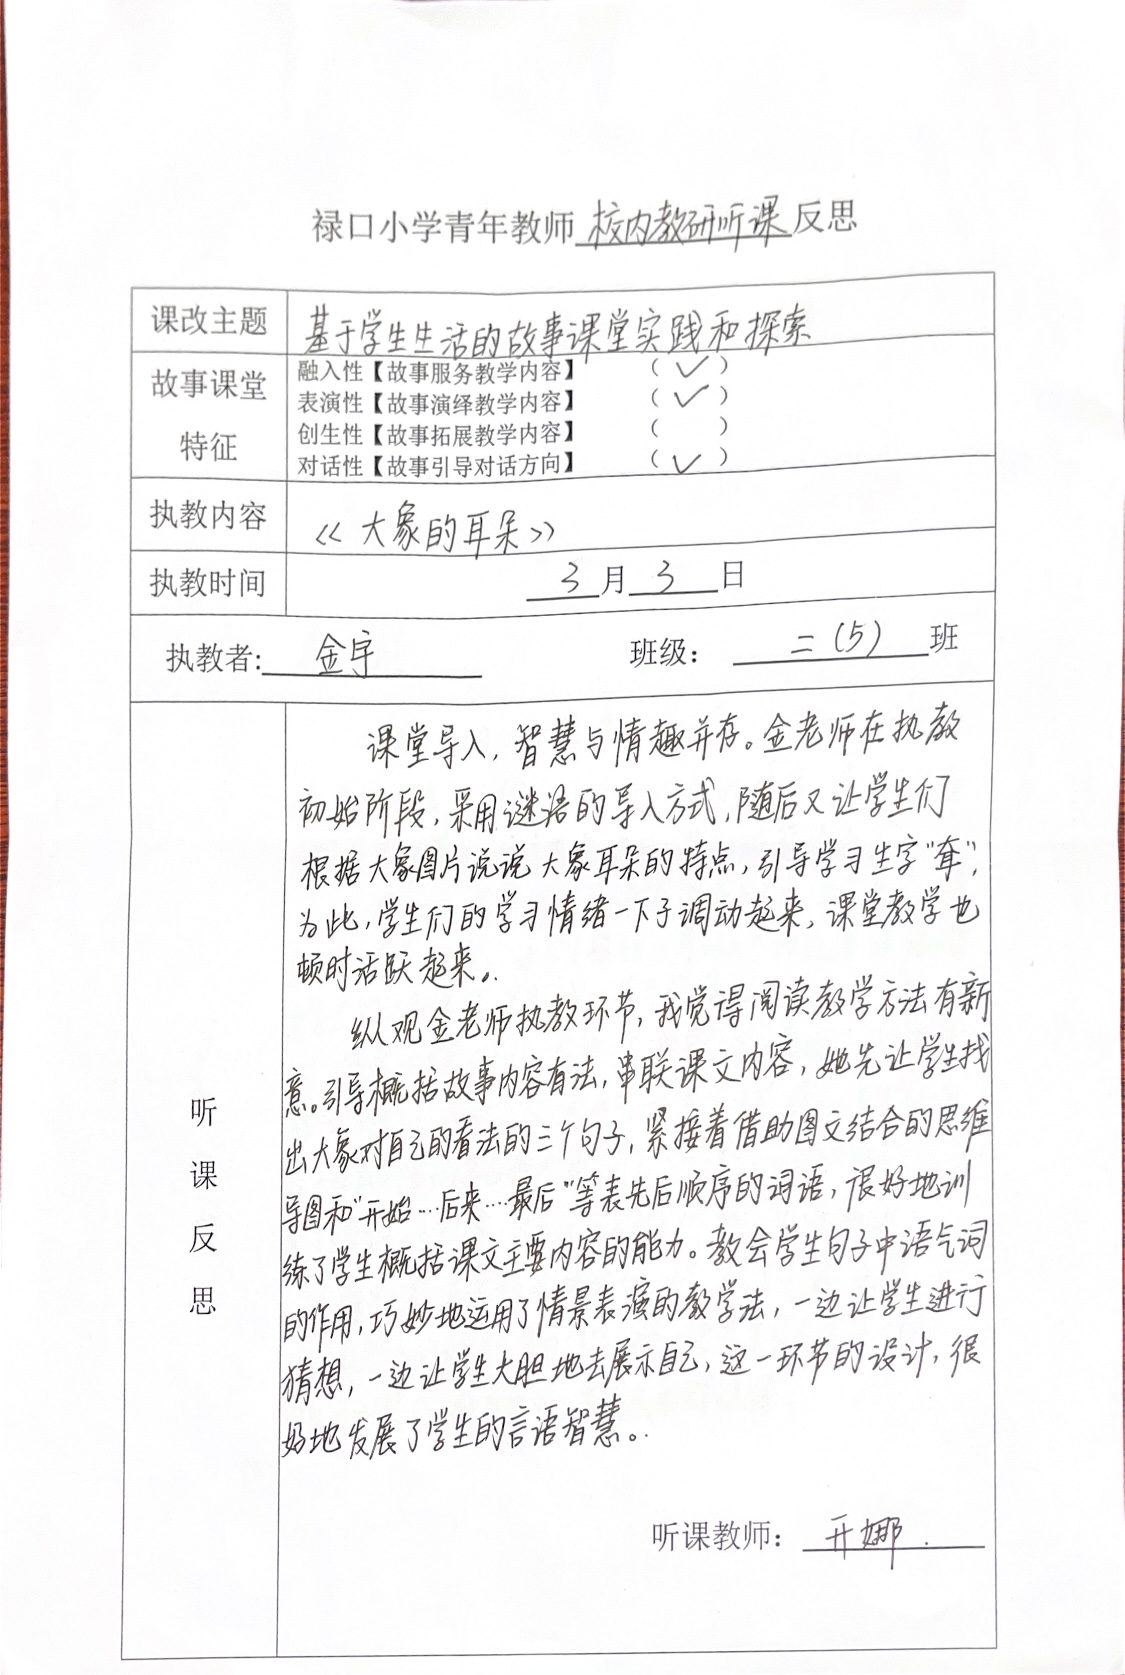 禄口小学青年教师校内教研听课反思
课改主题 基于学生生活的故事课堂实践和探索
故事课堂特征
融入性【故事服务教学内容】 （✓）
表演性【故事演绎教学内容】 （✓）
创生性【故事拓展教学内容】 （ ）
对话性【故事引导对话方向】 （✓）
执教内容 《大象的耳朵》
执教时间 3月3日
执教者：金宇 班级：二（5）班
听课反思
课堂导入，智慧与情趣并存。金老师在执教
初始阶段，采用谜语的导入方式，随后又让学生们
根据大象图片说说大象耳朵的特点，引导学习生字“耷”，
为此，学生们的学习情绪一下子调动起来，课堂教学也
顿时活跃起来。
纵观金老师执教环节，我觉得阅读教学方法有新
意。引导概括故事内容有法，串联课文内容，她先让学生找
出大象对自己的看法的三个句子，紧接着借助图文结合的思维
导图和“开始…后来…最后”等表先后顺序的词语，很好地训
练了学生概括课文主要内容的能力。教会学生句子中语气词
的作用，巧妙地运用了情景表演的教学法，一边让学生进行
猜想，一边让学生大胆地去展示自己，这一环节的设计，很
好地发展了学生的言语智慧。
听课教师：亓娜